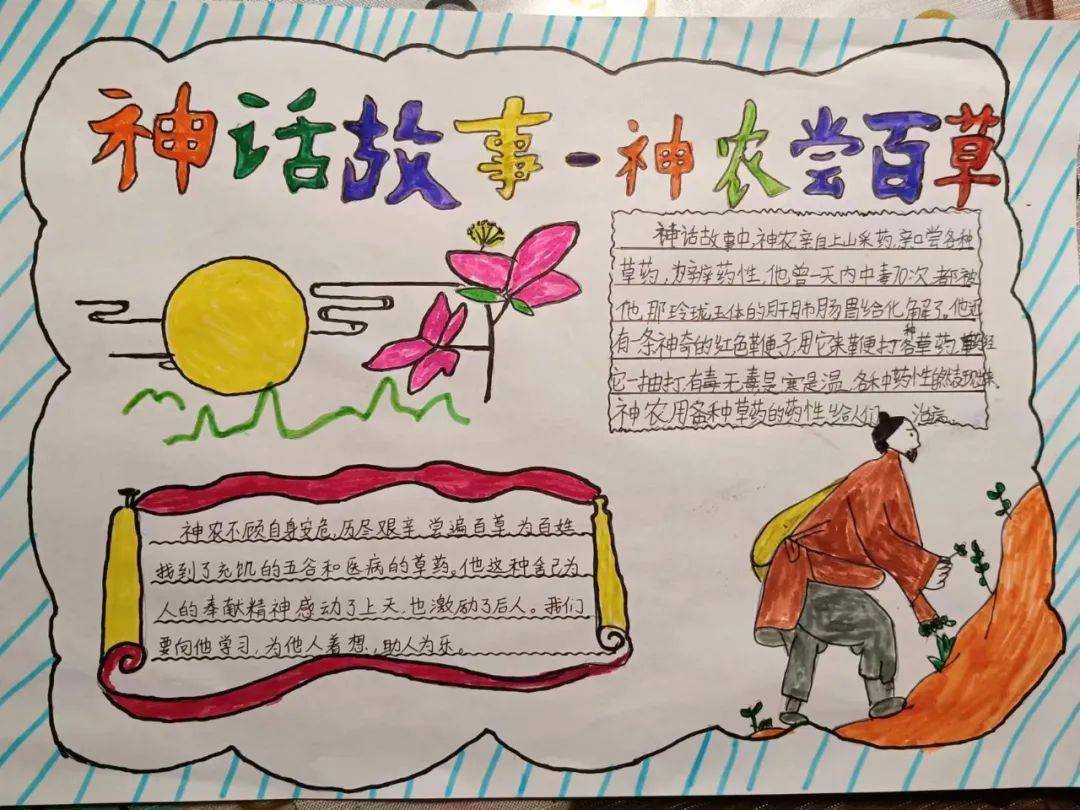 神话故事-神农尝百草
神话故事中,神农亲自上山采药,亲口尝各种
草药,为辨药性,他曾一天内中毒70次,都被
他,那玲珑玉体的肝肺肠胃给化解了。他还
有一条神奇的红色鞭子,用它来鞭打各种草药,
它一抽打,有毒无毒是寒是温,各种药性自然
神农用各种草药的药性给人们 治病
神农不顾自身安危,历尽艰辛,尝遍百草,为百姓
找到了充饥的五谷和医病的草药。他这种舍己为
人的奉献精神感动了上天,也激励了后人。我们
要向他学习,为他人着想,助人为乐。